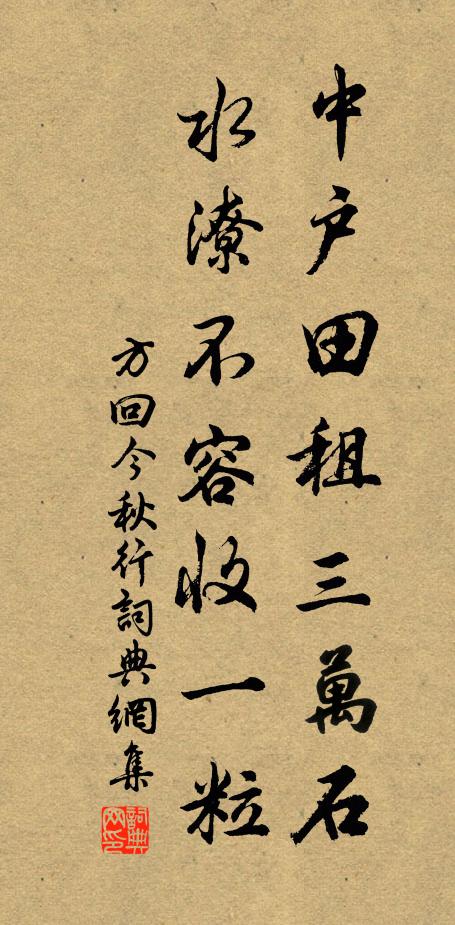 中户田租三萬石
水潦不容收一粒
方回今秋行詞典網集
詞典
网印